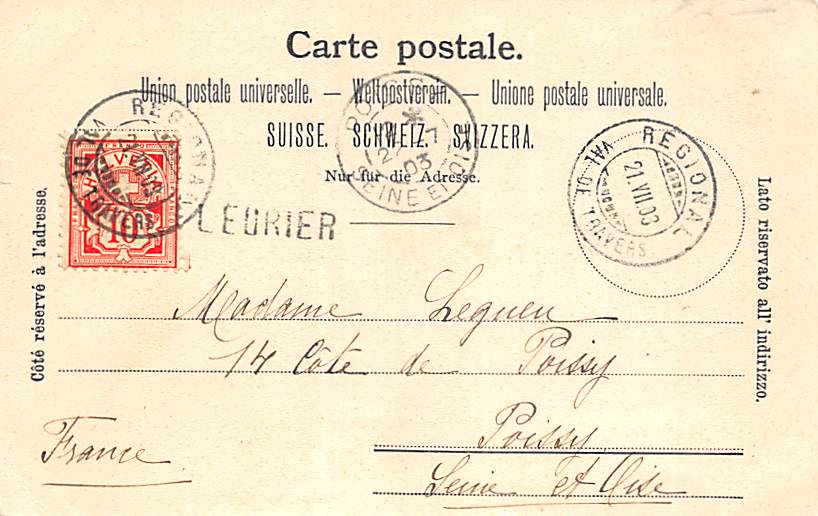 Carte postale.
Union postale universelle. — Weltpostverein. — Unione postale universale.
SUISSE. SCHWEIZ. SVIZZERA.
Nur für die Adresse.
Côté réservé à l'adresse.
Lato riservato all' indirizzo.
RÉGIONAL
VAL DE TRAVERS
10
POISSY
7
03
SEINE ET OISE
RÉGIONAL
21.VII.03
VAL DE TRAVERS
LEURIER
Madame Leguen
14 Côte de Poissy
Poissy
France
Seine et Oise